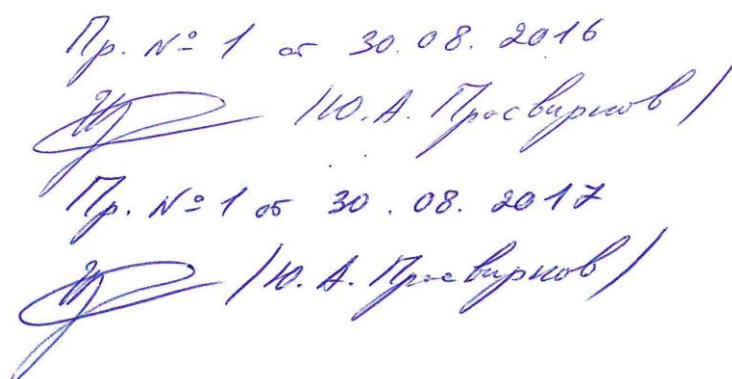 Пр. № 1 от 30.08.2016
/Ю.А. Просвирнов/
Пр. № 1 от 30.08.2017
/Ю.А. Просвирнов/